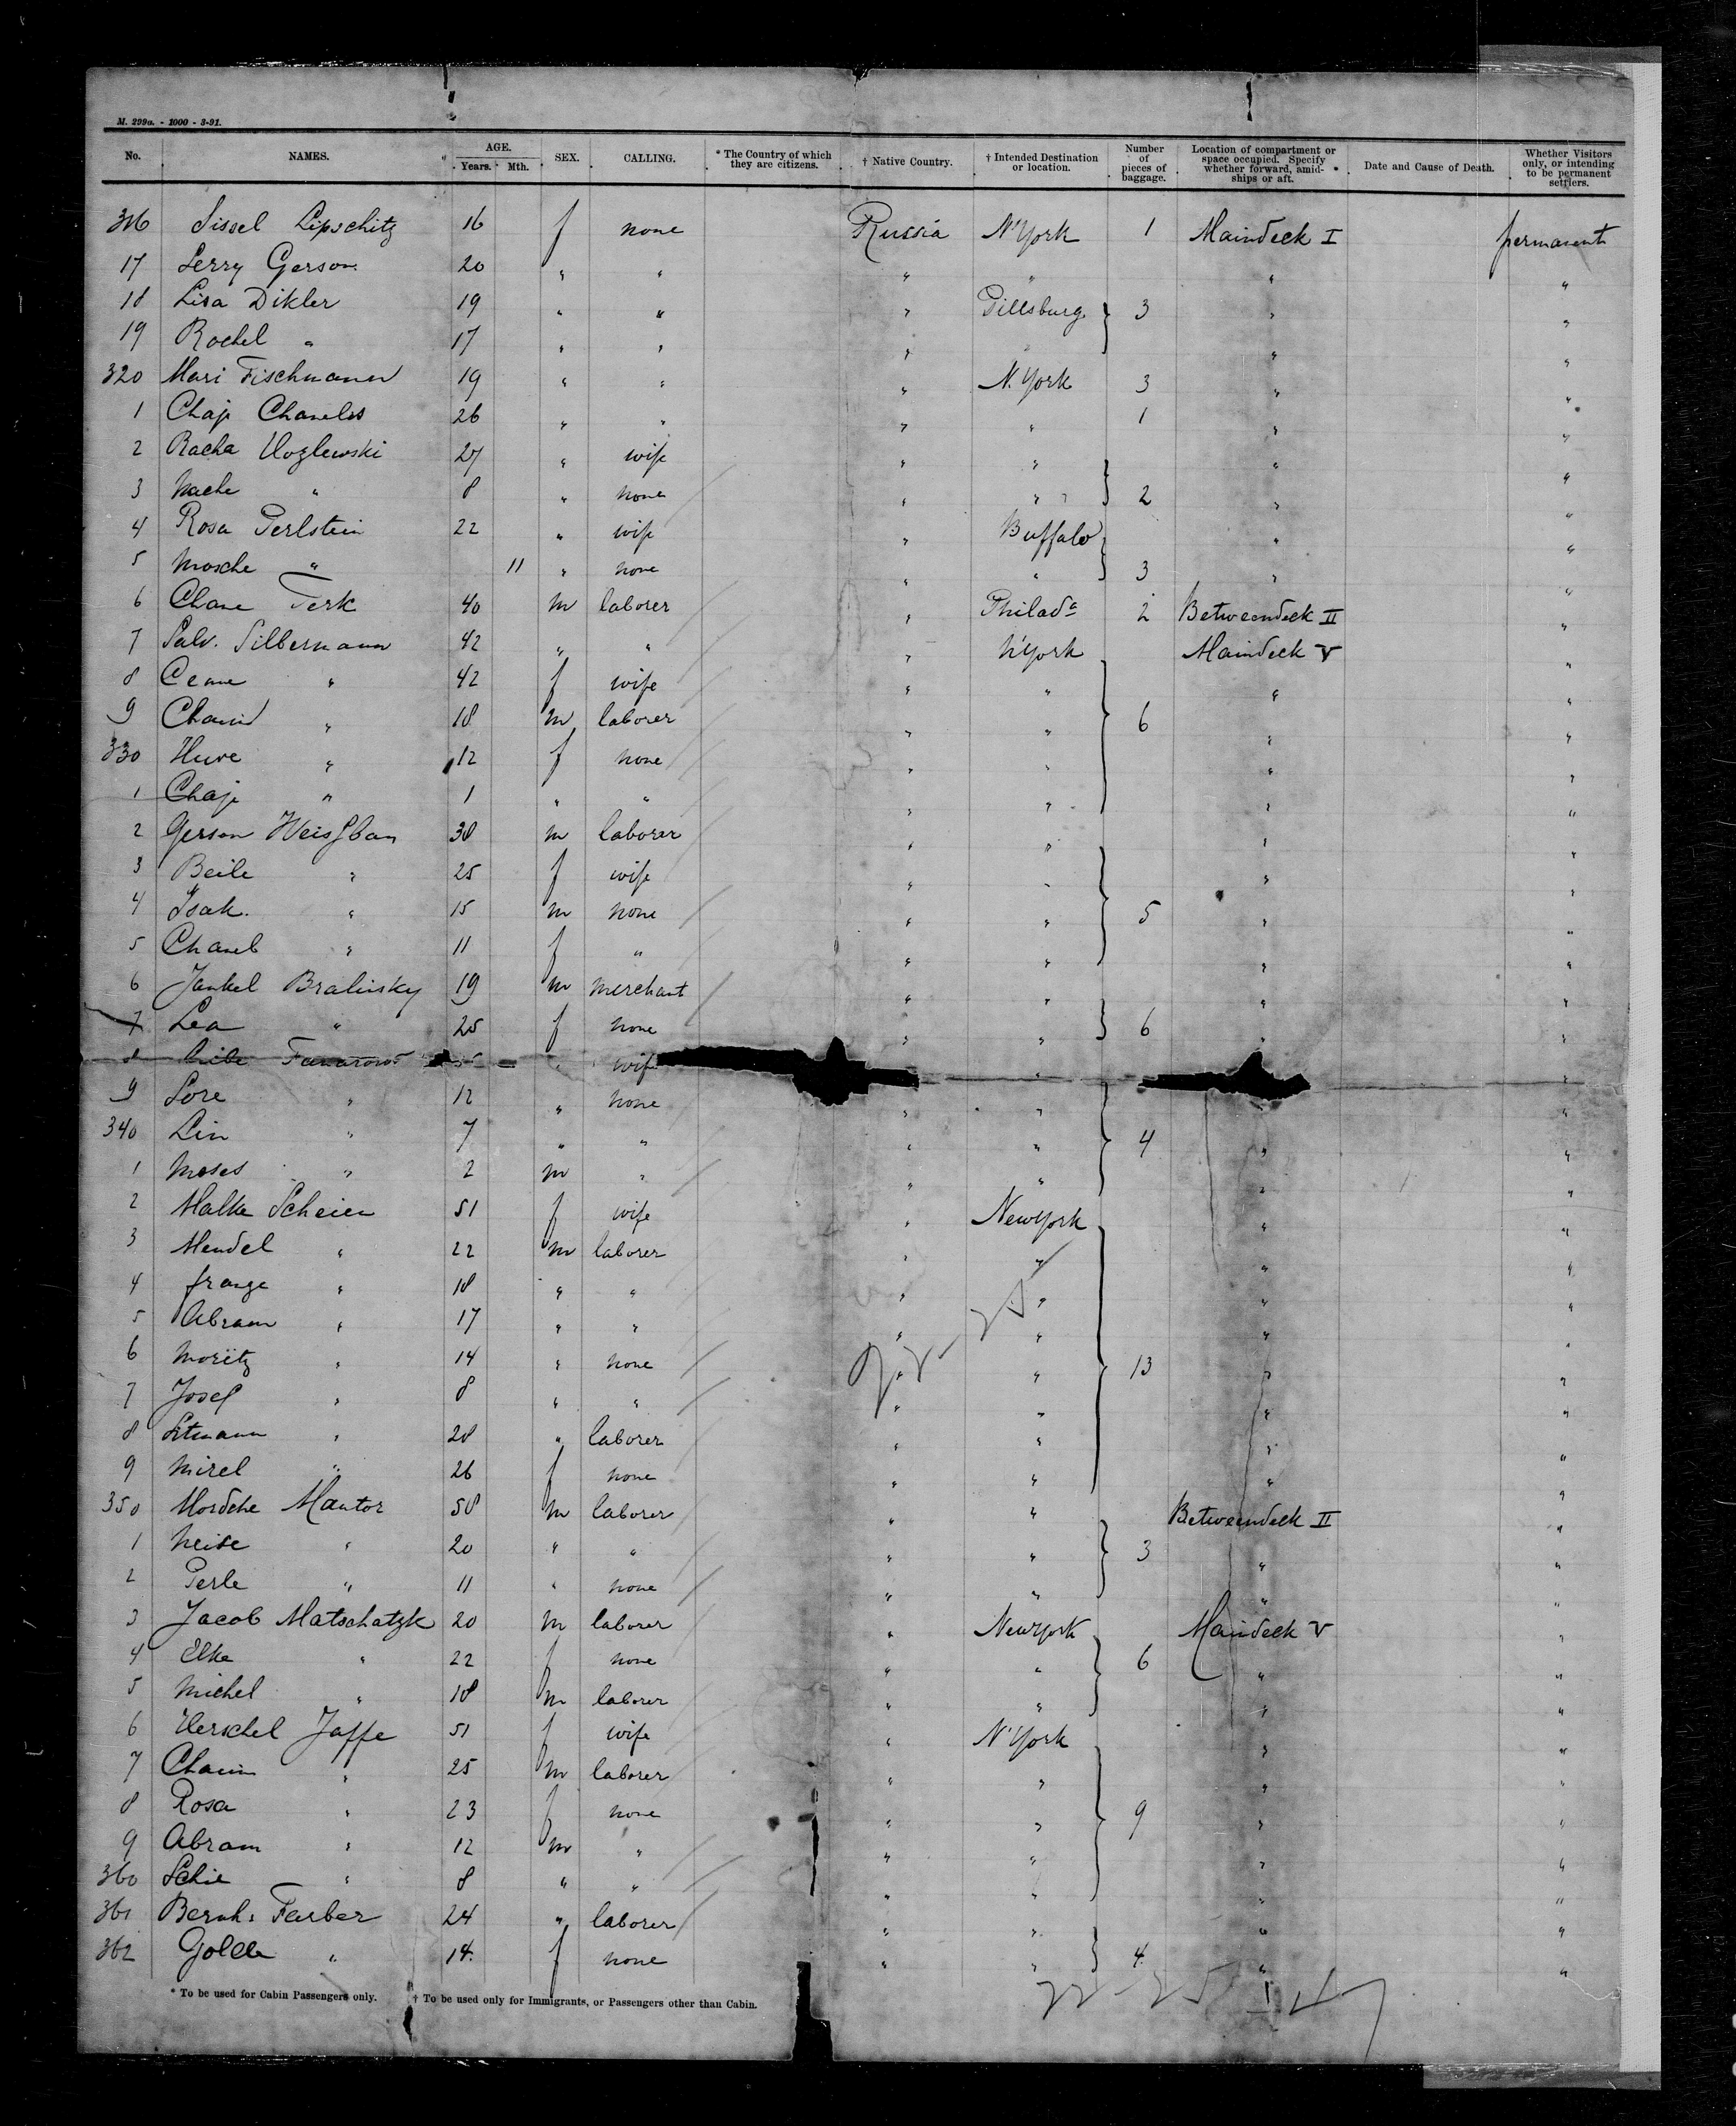 M. 299a. - 1000 - 3-91.
No. NAMES. AGE. Years. Mth. SEX. CALLING. * The Country of which they are citizens. † Native Country. † Intended Destination or location. Number of pieces of baggage. Location of compartment or space occupied. Specify whether forward, amidships or aft. Date and Cause of Death. Whether Visitors only, or intending to be permanent settlers.
316 Sissel Lipschitz 16 f none Russia N'York 1 Maindeck I permanent
17 Serry Gerson 20 " " " " " "
18 Lisa Dikler 19 " " " Pittsburg 3 " "
19 Rachel " 17 " " " " " "
320 Mari Fischmann 19 " " " N. York 3 " "
1 Chaje Chaneles 26 " " " " 1 " "
2 Racha Wozlewski 27 " wife " " " "
3 Nache " 8 " none " " 2 " "
4 Rosa Perlstein 22 " wife " Buffalo " "
5 Mosche " 11 " none " " 3 " "
6 Chane Terk 40 m laborer " Philada 2 Betweendeck II "
7 Salv. Silbermann 42 " " " N'York Maindeck V "
8 " 42 f wife " " " "
9 Chaim " 18 m laborer " " 6 " "
330 Huve " 12 f none " " " "
1 Chaje " 1 " " " " " "
2 Gerson 38 m laborer " " " "
3 Beile " 25 f wife " " " "
4 Isak. " 15 m none " " 5 " "
5 Chaneb " 11 f " " " " "
6 Jankel Bralinsky 19 m merchant " " " "
7 Lea " 25 f none " " 6 " "
8 wife " "
9 Sore " 12 " none " " "
340 Lin " 7 " " " " 4 " "
1 Moses " 2 m " " " " "
2 Malke Scheier 51 f wife " NewYork " "
3 Mendel " 22 m laborer " " " "
4 " 18 " " " " " "
5 Abram " 17 " " " " " "
6 Moritz " 14 " none " " 13 " "
7 Josef " 8 " " " " " "
8 " 28 " laborer " " " "
9 Mirel " 26 f none " " " "
350 Mordche Mantor 58 m laborer " " Betweendeck II "
1 Neise " 20 " " " " 3 " "
2 Perle " 11 " none " " " "
3 Jacob Matschatzk 20 m laborer " NewYork Maindeck V "
4 Elke " 22 f none " " 6 " "
5 Michel " 18 m laborer " " " "
6 Herschel Jaffe 51 f wife " N'York " "
7 Chaim " 25 m laborer " " " "
8 Rosa " 23 f none " " 9 " "
9 Abram " 12 m " " " " "
360 Schie " 8 " " " " " "
361 Bernh. Farber 24 " laborer " " " "
362 Golde " 14 f none " " 4 " "
* To be used for Cabin Passengers only. † To be used only for Immigrants, or Passengers other than Cabin.